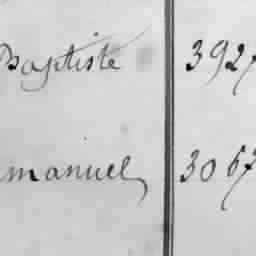 Baptiste 3927
manuel, 3067